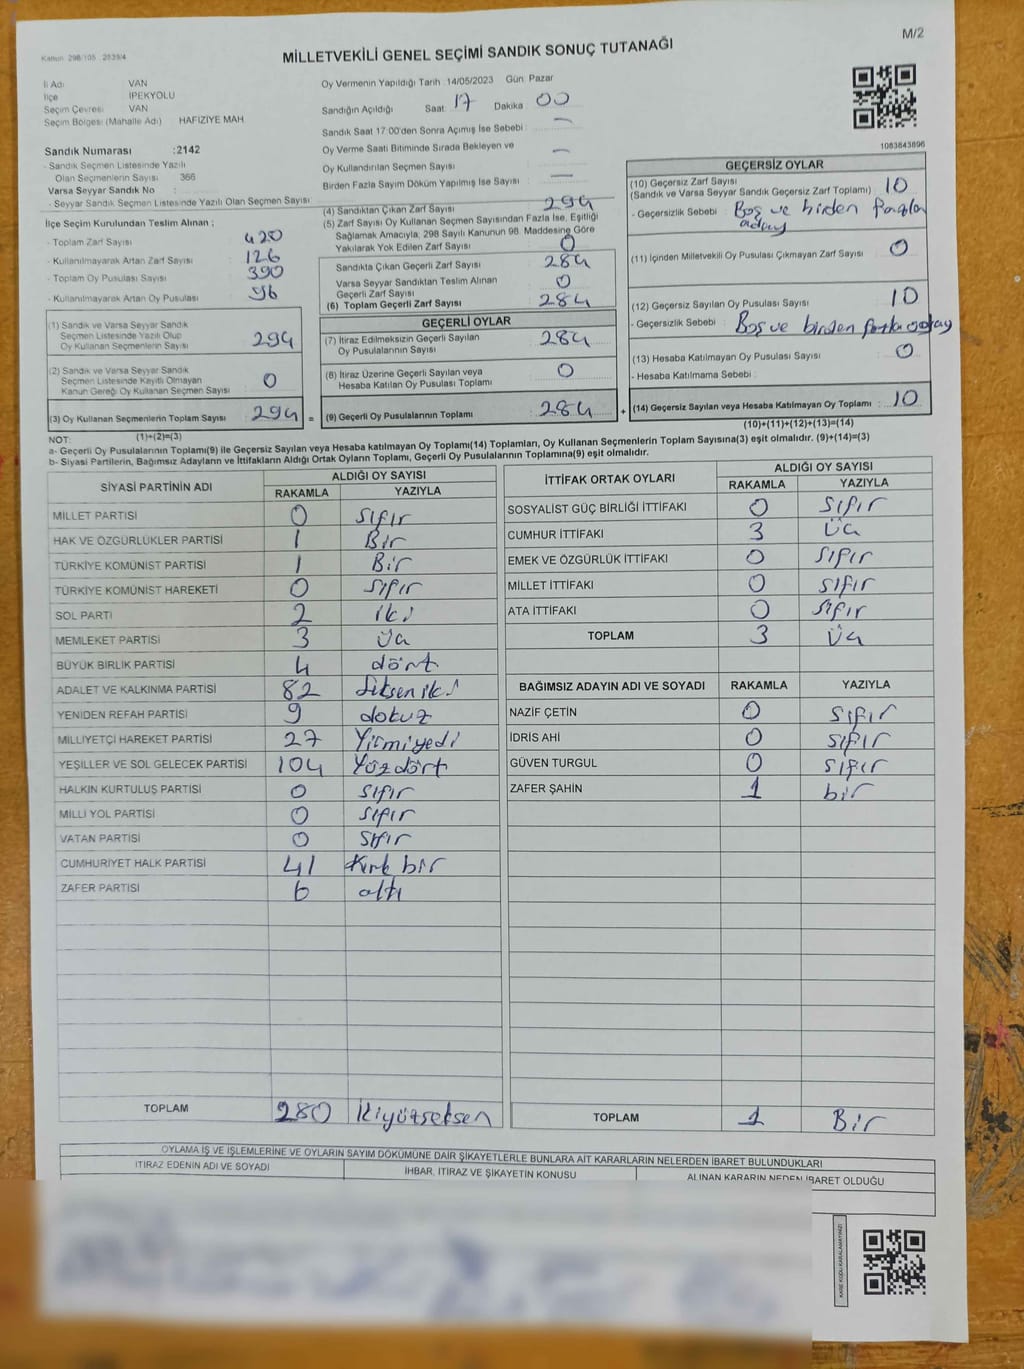 M/2
Kanun 298/105 2839/4
MİLLETVEKİLİ GENEL SEÇİMİ SANDIK SONUÇ TUTANAĞI
İl Adı VAN
İlçe İPEKYOLU
Seçim Çevresi VAN
Seçim Bölgesi (Mahalle Adı) HAFIZIYE MAH
Sandık Numarası :2142
- Sandık Seçmen Listesinde Yazılı
Olan Seçmenlerin Sayısı 366
Varsa Seyyar Sandık No :
- Seyyar Sandık Seçmen Listesinde Yazılı Olan Seçmen Sayısı
İlçe Seçim Kurulundan Teslim Alınan ;
- Toplam Zarf Sayısı 420
- Kullanılmayarak Artan Zarf Sayısı 126
- Toplam Oy Pusulası Sayısı 390
- Kullanılmayarak Artan Oy Pusulası 96
(1) Sandık ve Varsa Seyyar Sandık
Seçmen Listesinde Yazılı Olup
Oy Kullanan Seçmenlerin Sayısı 294
(2) Sandık ve Varsa Seyyar Sandık
Seçmen Listesinde Kayıtlı Olmayan
Kanun Gereği Oy Kullanan Seçmen Sayısı 0
(3) Oy Kullanan Seçmenlerin Toplam Sayısı 294 =
(1)+(2)=(3)
Oy Vermenin Yapıldığı Tarih 14/05/2023 Gün Pazar
Sandığın Açıldığı Saat 17 Dakika 00
Sandık Saat 17:00'den Sonra Açılmış İse Sebebi : —
Oy Verme Saati Bitiminde Sırada Bekleyen ve
Oy Kullandırılan Seçmen Sayısı —
Birden Fazla Sayım Döküm Yapılmış İse Sayısı —
(4) Sandıktan Çıkan Zarf Sayısı 294
(5) Zarf Sayısı Oy Kullanan Seçmen Sayısından Fazla İse, Eşitliği
Sağlamak Amacıyla, 298 Sayılı Kanunun 98. Maddesine Göre
Yakılarak Yok Edilen Zarf Sayısı 0
Sandıkta Çıkan Geçerli Zarf Sayısı 284
Varsa Seyyar Sandıktan Teslim Alınan
Geçerli Zarf Sayısı 0
(6) Toplam Geçerli Zarf Sayısı 284
GEÇERLİ OYLAR
(7) İtiraz Edilmeksizin Geçerli Sayılan
Oy Pusulalarının Sayısı 284
(8) İtiraz Üzerine Geçerli Sayılan veya
Hesaba Katılan Oy Pusulası Toplamı 0
(9) Geçerli Oy Pusulalarının Toplamı 284 +
1083843896
GEÇERSİZ OYLAR
(10) Geçersiz Zarf Sayısı
(Sandık ve Varsa Seyyar Sandık Geçersiz Zarf Toplamı) 10
- Geçersizlik Sebebi : Boş ve birden fazla
aday
(11) İçinden Milletvekili Oy Pusulası Çıkmayan Zarf Sayısı 0
(12) Geçersiz Sayılan Oy Pusulası Sayısı 10
- Geçersizlik Sebebi : Boş ve birden fazla aday
(13) Hesaba Katılmayan Oy Pusulası Sayısı 0
- Hesaba Katılmama Sebebi :
(14) Geçersiz Sayılan veya Hesaba Katılmayan Oy Toplamı : 10
(10)+(11)+(12)+(13)=(14)
NOT:
a- Geçerli Oy Pusulalarının Toplamı(9) ile Geçersiz Sayılan veya Hesaba katılmayan Oy Toplamı(14) Toplamları, Oy Kullanan Seçmenlerin Toplam Sayısına(3) eşit olmalıdır. (9)+(14)=(3)
b- Siyasi Partilerin, Bağımsız Adayların ve İttifakların Aldığı Ortak Oyların Toplamı, Geçerli Oy Pusulalarının Toplamına(9) eşit olmalıdır.
SİYASİ PARTİNİN ADI ALDIĞI OY SAYISI
RAKAMLA YAZIYLA
MİLLET PARTİSİ 0 sıfır
HAK VE ÖZGÜRLÜKLER PARTİSİ 1 Bir
TÜRKİYE KOMÜNİST PARTİSİ 1 Bir
TÜRKİYE KOMÜNİST HAREKETİ 0 sıfır
SOL PARTİ 2 iki
MEMLEKET PARTİSİ 3 üç
BÜYÜK BİRLİK PARTİSİ 4 dört
ADALET VE KALKINMA PARTİSİ 82 Seksen iki
YENİDEN REFAH PARTİSİ 9 dokuz
MİLLİYETÇİ HAREKET PARTİSİ 27 Yirmiyedi
YEŞİLLER VE SOL GELECEK PARTİSİ 104 Yüzdört
HALKIN KURTULUŞ PARTİSİ 0 sıfır
MİLLİ YOL PARTİSİ 0 sıfır
VATAN PARTİSİ 0 sıfır
CUMHURİYET HALK PARTİSİ 41 Kırk bir
ZAFER PARTİSİ 6 altı
TOPLAM 280 İkiyüzseksen
İTTİFAK ORTAK OYLARI ALDIĞI OY SAYISI
RAKAMLA YAZIYLA
SOSYALİST GÜÇ BİRLİĞİ İTTİFAKI 0 sıfır
CUMHUR İTTİFAKI 3 üç
EMEK VE ÖZGÜRLÜK İTTİFAKI 0 sıfır
MİLLET İTTİFAKI 0 sıfır
ATA İTTİFAKI 0 sıfır
TOPLAM 3 üç
BAĞIMSIZ ADAYIN ADI VE SOYADI RAKAMLA YAZIYLA
NAZİF ÇETİN 0 sıfır
İDRİS AHİ 0 sıfır
GÜVEN TURGUL 0 sıfır
ZAFER ŞAHİN 1 bir
TOPLAM 1 Bir
OYLAMA İŞ VE İŞLEMLERİNE VE OYLARIN SAYIM DÖKÜMÜNE DAİR ŞİKAYETLERLE BUNLARA AİT KARARLARIN NELERDEN İBARET BULUNDUKLARI
İTİRAZ EDENİN ADI VE SOYADI İHBAR, İTİRAZ VE ŞİKAYETİN KONUSU ALINAN KARARIN NEDEN İBARET OLDUĞU
KARE KODU KARALAMAYINIZ!